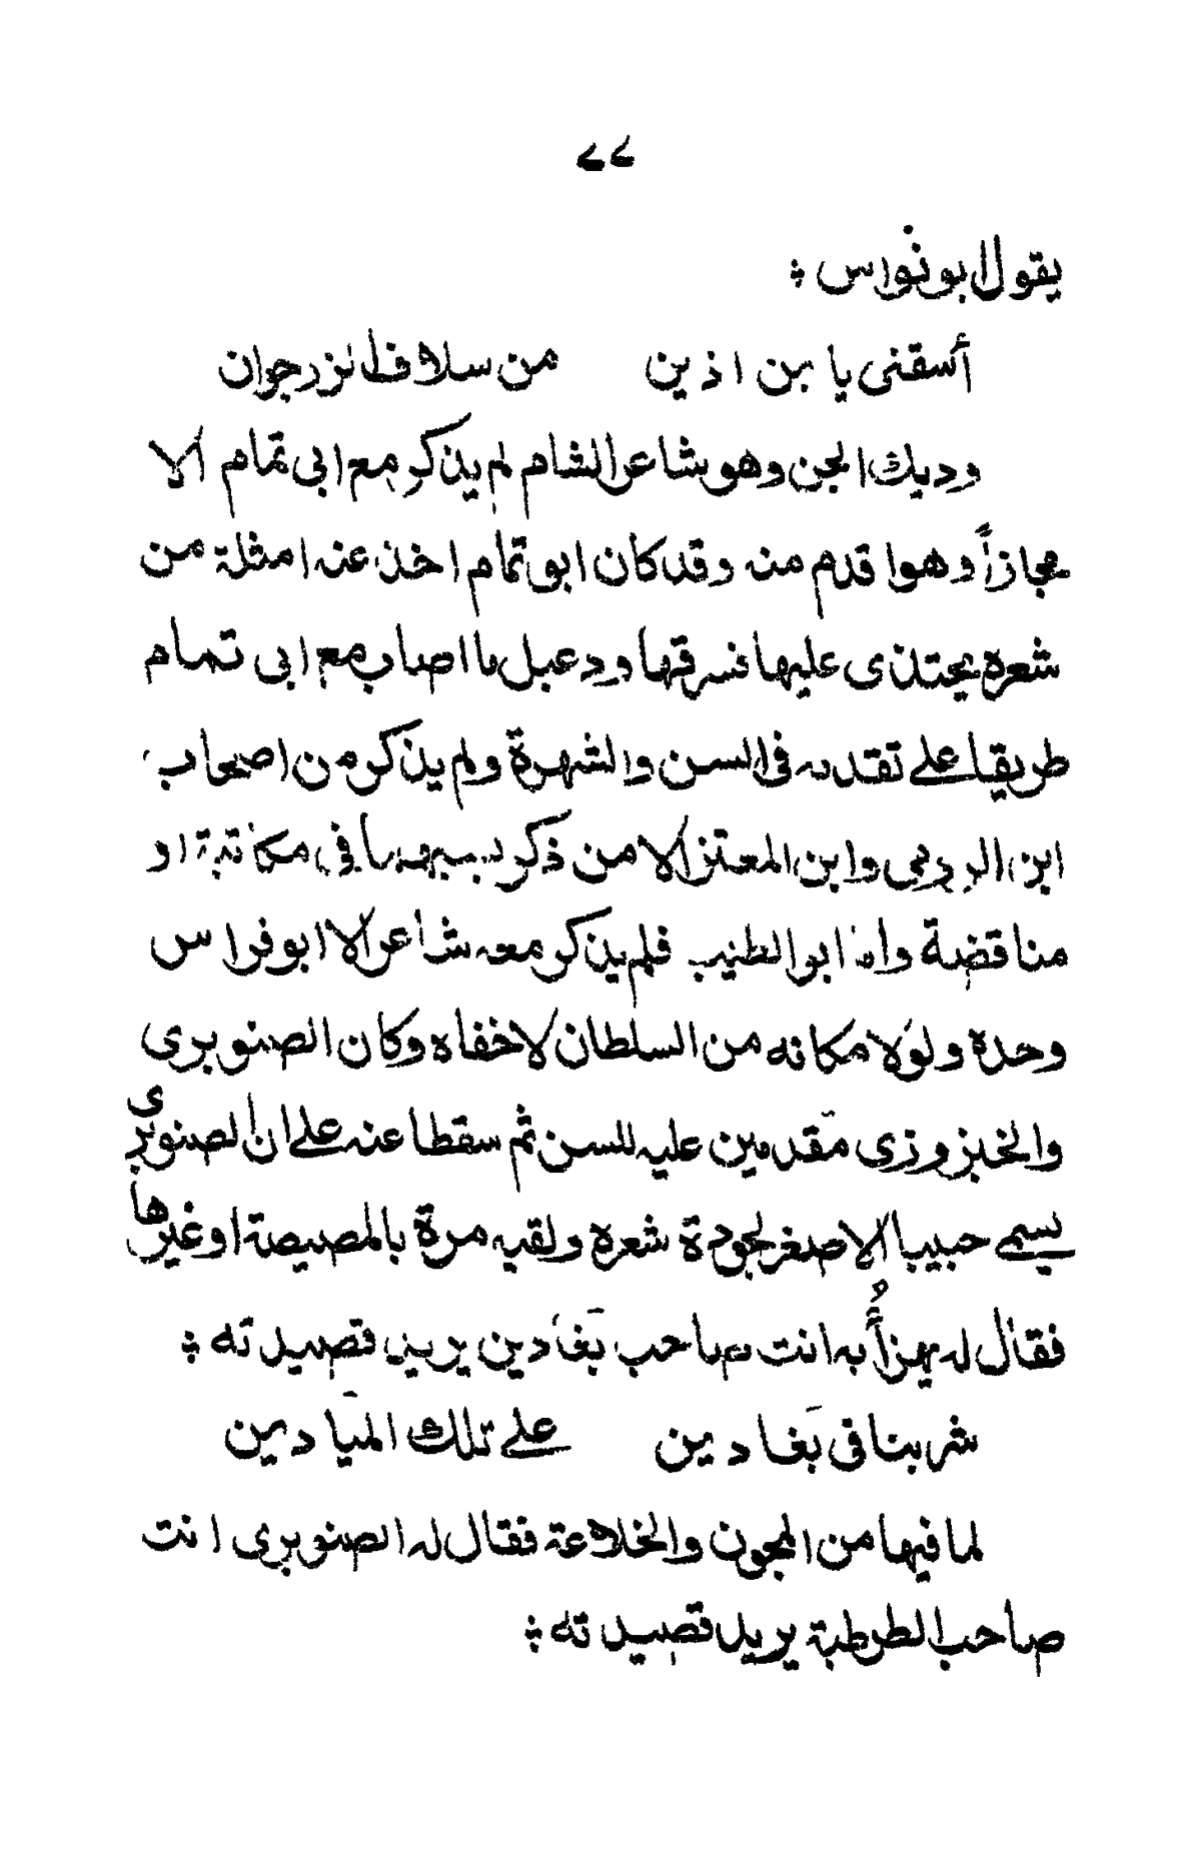 ٧٧
يقول ابو نواس :
أسقنى يا بن اذين من سلاف الزرجوان
وديك الجن وهو شاعر الشام لم يذكر مع ابى تمام الا
مجازاً وهو اقدم منه وقد كان ابو تمام اخذ عنه امثلة من
شعره يحتذى عليها فسرقها ودعبل ما اصاب مع ابى تمام
طريقا على تقدمه فى السن والشهرة ولم يذكر من اصحاب
ابن الرومى وابن المعتز الا من ذكر بسببهما فى مكاتبة او
مناقضة واما ابو الطيب فلم يذكر معه شاعر الا ابو فراس
وحده ولولا مكانه من السلطان لاخفاه وكان الصنوبرى
والخبزوزى مقدمين عليه للسن ثم سقطا عنه على ان الصنوبرى
يسمى حبيبا الاصغر لجودة شعره ولقيه مرة بالمصيصة او غيرها
فقال له يهزأُ به انت صاحب بَغادين يريد قصيدته :
شربنا فى بَغادين على تلك الميَادين
لما فيها من المجون والخلاعة فقال له الصنوبرى انت
صاحب الطرطبة يريد قصيدته :